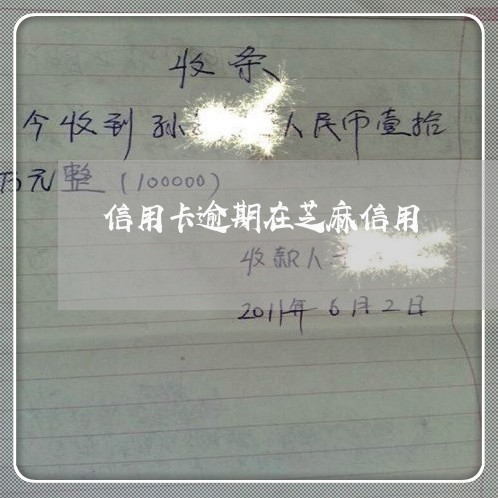 收条
今收到孙 人民币壹拾
万元整(100000)
信用卡逾期在芝麻信用
收款人
2011年6月2日